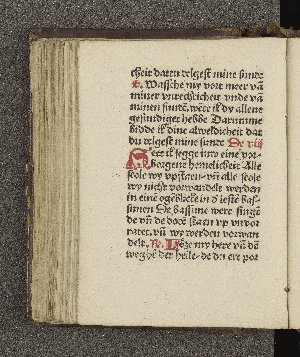 cheit dattu delgest mine sunde
℟. Wassche my vort meer vā
miner vnrechticheit vnde vā
minen sundē. wēte ik dy allene
gesundiget hebbe Darumme
bidde ik dine alweldicheit dat
du delgest mine sunde De viij
Seet ik segge iuw eine vor-
borgene hemelicheit. Alle
scole wy vpstaen. vn̄ alle scole
wy nicht vorwandelt werden
in einē ogēblicke in d' iestē bas-
sunen De bassune wert singē
de vn̄ de dodē staen vp vnvor
rottet. vn̄ wy werden vorwan
delt. ℟. Löze my here vā dē
wegħe der helle. de du ere por